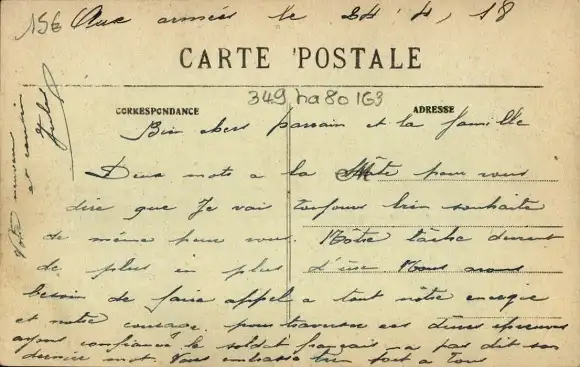 156 Aux armées le 24.4.18
CARTE POSTALE
349 ha 80 163
CORRESPONDANCE
ADRESSE
Bien chers parrain et la famille
Deux mots a la hâte pour vous
dire que Je vai toujours bien souhaite
de même pour vous. Nôtre tâche devient
de plus en plus d'ure Nous avons
besoin de faire appel a tout nôtre energie
et notre courage. pour traverser ces dures épreuves
ayons confiance le soldat français n a pas dit son
dernier mot. Vous embrasse bien fort a Tous
Votre neveu
et cousin
Jules